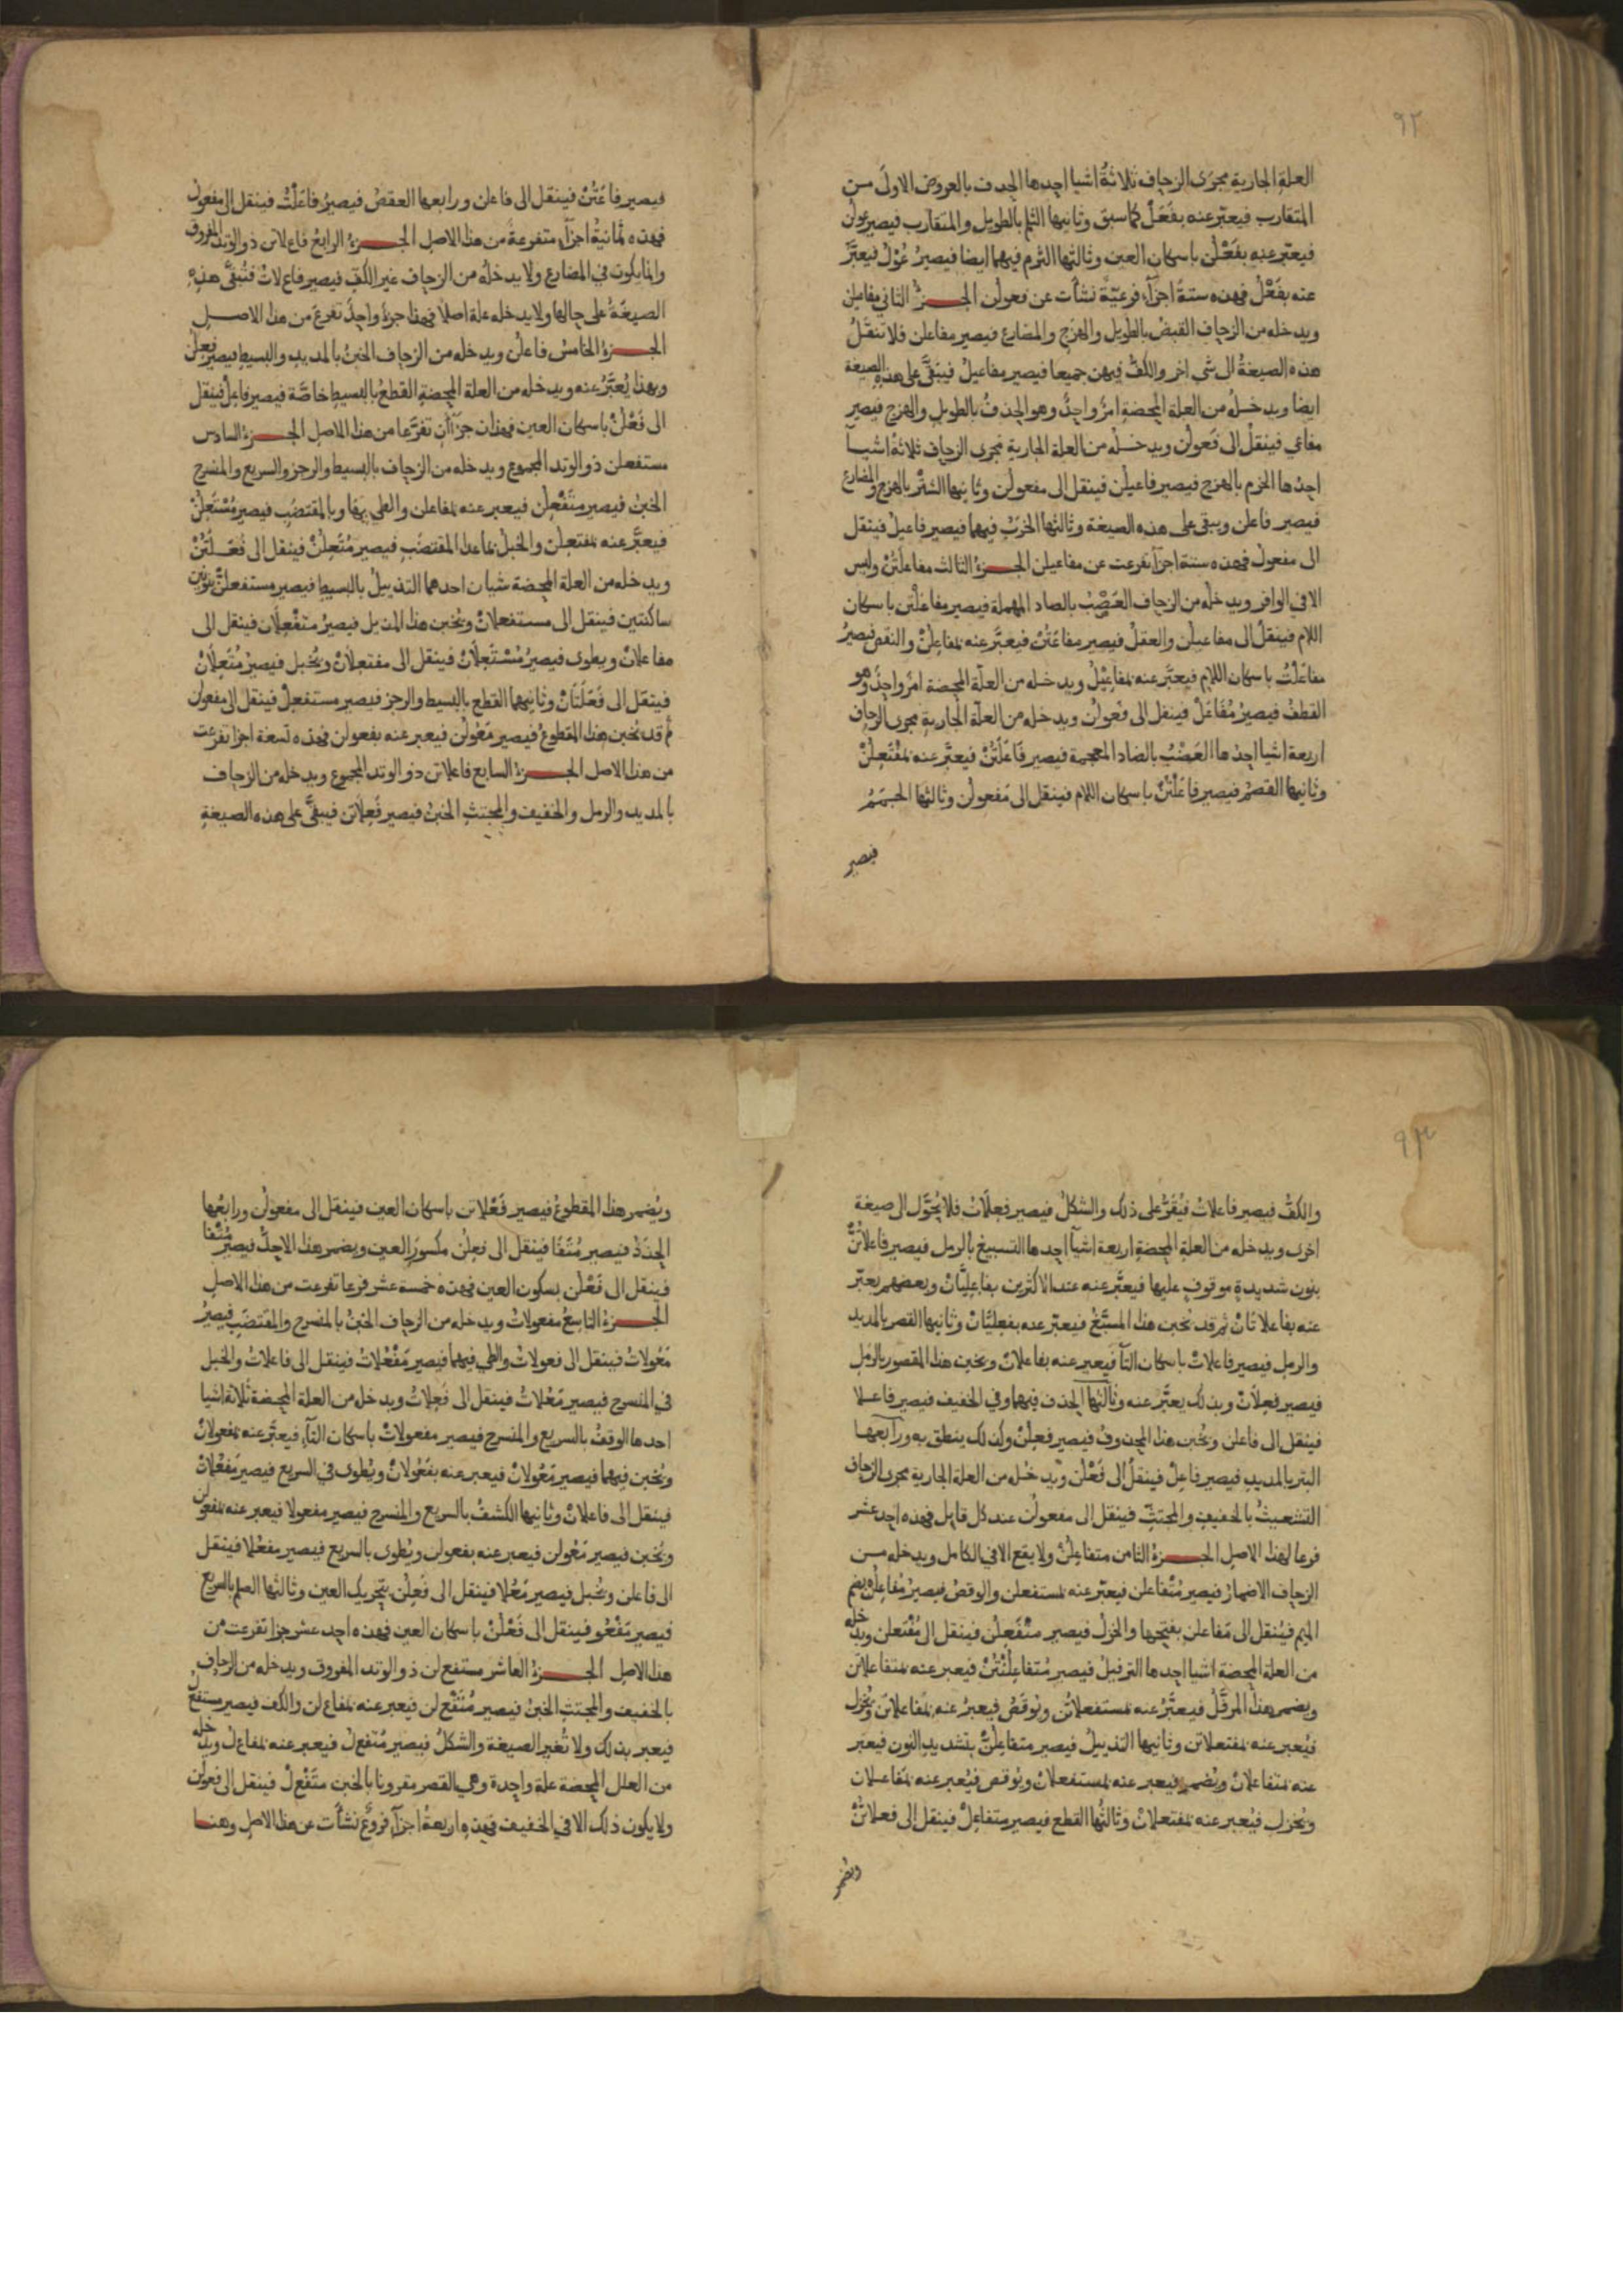 ٩٢
العلة الجارية مجرى الزحاف ثلاثةُ اشيا احدها الحذف بالعروض الاولى من
المتقارب فيعبّر عنه بفَعَلْ كما سبق وثانيها الثلم بالطويل والمتقارب فيصير عولن
فيعبّر عنه بفَعْلن باسكان العين وثالثها الثرم فيهما ايضا فيصير عُوْلُ فيعبَّر
عنه بفَعْلُ فهذه ستة اجزآء فرعيّة نشأت عن فعولن الجـــزءُ الثاني مفاعيلن
ويدخله من الزحاف القبض بالطويل والهزج والمضارع فيصير مفاعلن فلا تنقلُ
هذه الصيغةُ الى شي اخر والكفُّ فيهن جميعا فيصير مفاعيلُ فيبَقَّى على هذه الصيغة
ايضا ويدخلُه من العلة المحضة امرٌ واحدٌ وهو الحذفُ بالطويل والهزج فيصير
مفاعي فينقلُ الى فَعولن ويدخلُه من العلة الجارية مجرى الزحاف ثلاثةُ اشيآ
احدُها الخرم بالهزج فيصير فاعيلن فينقل الى مفعولن وثانيها الشتْر بالهزج والمضارع
فيصير فاعلن ويبقى على هذه الصيغة وثالثها الخرَبُ فيهما فيصير فاعيلُ فينقل
الى مفعولُ فهذه ستة اجزآ تفرعت عن مفاعيلن الجـــزءُ الثالث مفاعلَتُنْ وليس
الا في الوافر ويدخلُه من الزحاف العَصْبُ بالصاد المهملة فيصير مفاعلْتن باسكان
اللام فينقلُ الى مفاعيلن والعقلُ فيصير مفاعَتُنْ فيعبَّر عنه بمفاعِلُنْ والنقصُ فيصيرُ
مفاعَلْتُ باسكان اللام فيعبَّر عنه بمفاعيْلُ ويدخله من العلّة المحضة امرٌ واحدٌ وهو
القطفُ فيصيرُ مُفَاعَلْ فينقل الى فعولن ويدخله من العلّة الجارية مجرى الزحاف
اربعة اشيا احدُها العَضْبُ بالضاد المعجمة فيصير فَاعَلَتُنْ فيعبَّر عنه بمُفْتَعِلُنْ
وثانيها القصمُ فيصير فاعَلْتُنْ باسكان اللام فينقل الى مَفعولُن وثالثها الجممُ
فيصير
فيصير فاعَتُنْ فينقل الى فاعلن ورابعها العقصُ فيصيرُ فاعَلْتُ فينقل الى مفعولُ
فهذه ثمانيةُ اجزآءٍ متفرعةٌ من هذا الاصل الجـــزءُ الرابعُ فاع لاتن ذو الوتد المفروق
وانما يكون في المضارع ولا يدخلُه من الزحاف غير الكفِّ فيصير فاع لاتُ فتُبَقَّى هذهِ
الصيغةُ على حالها ولا يدخله علة اصلا فهذا جزءٌ واحدٌ تفرعَ من هذا الاصل
الجـــزءُ الخامسُ فاعلُن ويدخله من الزحاف الخبنُ بالمديد والبسيط فيصير فَعِلُنْ
وبهذا يُعبَّرُ عنه ويدخله من العلة المحضة القطعُ بالبسيط خاصَّة فيصير فاعِلْ فينقل
الى فَعْلُنْ باسكان العين فهذان جزآان تفرَّعا من هذا الاصل الجـــزءُ السادس
مستفعلن ذو الوتد المجموع ويدخله من الزحاف بالبسيط والرجز والسريع والمنسرح
الخبنُ فيصير متَفْعِلُن فيعبر عنه بمفاعلن والطي بها وبالمقتضب فيصير مُسْتَعِلُنْ
فيعبَّر عنه بمفتعلن والخبلُ بما عدا المقتضب فيصير مُتَعِلُنْ فينقل الى فَعَـلَتُنْ
ويدخله من العلة المحضة شيان احدهما التذييلُ بالبسيط فيصير مستفعلنْنْ بنونين
ساكنتين فينقل الى مستفعلانْ ويُخبن هذا المذيل فيصيرُ متَفْعِلَان فينقل الى
مفاعلانْ ويطوى فيصيرُ مُسْتَعِلَانْ فينقل الى مفتعلانْ ويُخبل فيصيرُ مُتَعِلَانْ
فينقل الى فَعَلَتَانْ وثانيهما القطع بالبسيط والرجز فيصير مستفعِلْ فينقل الى مفعولن
ثم قد يخبن هذا المقطوعُ فيصير مَعُولُن فيعبر عنه بفعولن فهذه تسعة اجزا تفرعت
من هذا الاصل الجـــزءُ السابع فاعلاتن ذو الوتد المجموع ويدخله من الزحاف
بالمديد والرمل والخفيف والمجتث الخبنُ فيصير فَعِلَاتن فيبقَّى على هذه الصيغة
٩٣
والكفُّ فيصير فاعلاتُ فيُقَرُّ على ذلك والشكلُ فيصير فعِلَاتُ فلا يُحَوَّل الى صيغة
اخرى ويدخله من العلة المحضة اربعة اشيآ احدها التسبيغ بالرمل فيصير فاعلاتُنّْ
بنون شديدةٍ موقوف عليها فيعبَّر عنه عند الاكثرين بفاعِليَّانْ وبعضهم يعبّر
عنه بفاعلاتَانْ ثم قد يخبن هذا المسبَّغُ فيعبّر عنه بفعِليَّانْ وثانيها القصر بالمديد
والرمل فيصير فاعلاتْ باسكان التآ فيعبر عنه بفاعلانْ ويخبن هذا المقصور بالرمل
فيصير فعِلَاتْ وبذلك يعبّر عنه وثالثها الحذف فيهما وفي الخفيف فيصير فاعلا
فينقل الى فاعلن ويُخبن هذا المحذوفُ فيصير فعِلُنْ وكذلك ينطق به ورابعها
البتر بالمديد فيصير فاعِلْ فينقلُ الى فَعْلن ويدخلُه من العلة الجارية مجرى الزحاف
التشعيثُ بالخفيف والمجتثّ فينقل الى مفعولن عند كل قايل فهذه احد عشر
فرعا لهذا الاصل الجـــزءُ الثامن متفاعلُنْ ولا يقع الا في الكامل ويدخله من
الزحاف الاضمارُ فيصير مُتْفاعلن فيعبّر عنه بمستفعلن والوقصُ فيصيرُ مُفاعلُن بضم
الميم فيُنقل الى مَفاعلن بفتحها والخزلُ فيصير متْفَعِلُن فينقل الى مُفْتعلن ويدخله
من العلة المحضة اشيا احدها الترفيلُ فيصير مُتفاعلُنْتُنْ فيعبر عنه بمتفاعلاتن
ويضمر هذا المرفَّلُ فيعبَّرُ عنه بمستفعلاتُن ويُوقَصُ فيعبرُ عنه بمُفاعلاتن ويُخزل
فيُعبر عنه بمفتعلاتن وثانيها التذييلُ فيصير متفاعلُنّْ بتشديد النون فيعبَر
عنه بمتفاعلانْ ويُضمر فيعبر عنه بمستفعلانْ ويُوقص فيُعبر عنه بمَفاعلان
ويُخزل فيُعبر عنه بمفتعلانْ وثالثُها القطع فيصير متفاعِلْ فينقل الى فعلاتُنْ
ويضمر
ويُضمر هذا المقطوعُ فيصير فَعْلاتن باسكان العين فينقل الى مفعولُن ورابعُها
الحذَذُ فيصير مُتَفَا فينقل الى فعِلُن مكسورَ العين ويضمر هذا الاحذُّ فيصير مُتْفَا
فينقل الى فَعْلُن بسكون العين فهذه خمسة عشر فرعا تفرعت من هذا الاصل
الجـــزءُ التاسعُ مفعولاتُ ويدخله من الزحاف الخبنُ بالمنسرح والمقتضَب فيصيرُ
مَعُولاتُ فينقل الى فعولاتُ والطي فيهما فيصير مَفْعُلاتُ فينقل الى فاعلاتُ والخبل
في المنسرح فيصير مَعُلاتُ فينقل الى فَعِلاتُ ويدخله من العلة المحضة ثلاثة اشيا
احدها الوقفُ بالسريع والمنسرح فيصير مفعولاتْ باسكان التآءِ فيعبّر عنه بمفعولانْ
ويُخبن فيهما فيصير مَعُولانْ فيعبر عنه بفَعُولانْ ويُطوى في السريع فيصير مَفْعُلاتْ
فينقل الى فاعلانْ وثانيها الكشفُ بالسريع والمنسرح فيصير مفعولا فيعبر عنه بمفعولن
ويُخبن فيصير مَعُولن فيعبر عنه بفعولن ويُطوى بالسريع فيصير مفعُلا فينقل
الى فاعلن ويُخبل فيصير مَعُلا فينقل الى فَعِلُن بتحريك العين وثالثها الصلم بالسريع
فيصير مَفْعُو فينقل الى فَعْلُنْ باسكان العين فهذه احد عشر جزا تفرعت من
هذا الاصل الجـــزءُ العاشر مستفع لن ذو الوتد المفروق ويدخله من الزحاف
بالخفيف والمجتث الخبنُ فيصير مُتَفْع لن فيعبر عنه بمفاع لن والكف فيصير مستفع لُ
فيعبر بذلك ولا تُغير الصيغة والشكلُ فيصير مُتَفعِ لُ فيعبر عنه بمفاع لُ ويدخله
من العلل المحضة علة واحدة وهي القصر مقرونا بالخبن متَفْعِ لْ فينقل الى فعولن
ولا يكون ذلك الا في الخفيف فهذهِ اربعةُ اجزآءٍ فروعٌ نشأت عن هذا الاصل وهنا